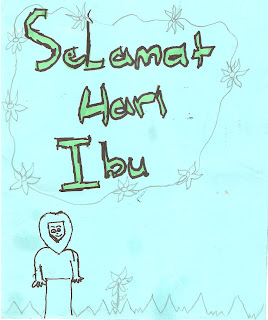 Selamat
Hari
Ibu